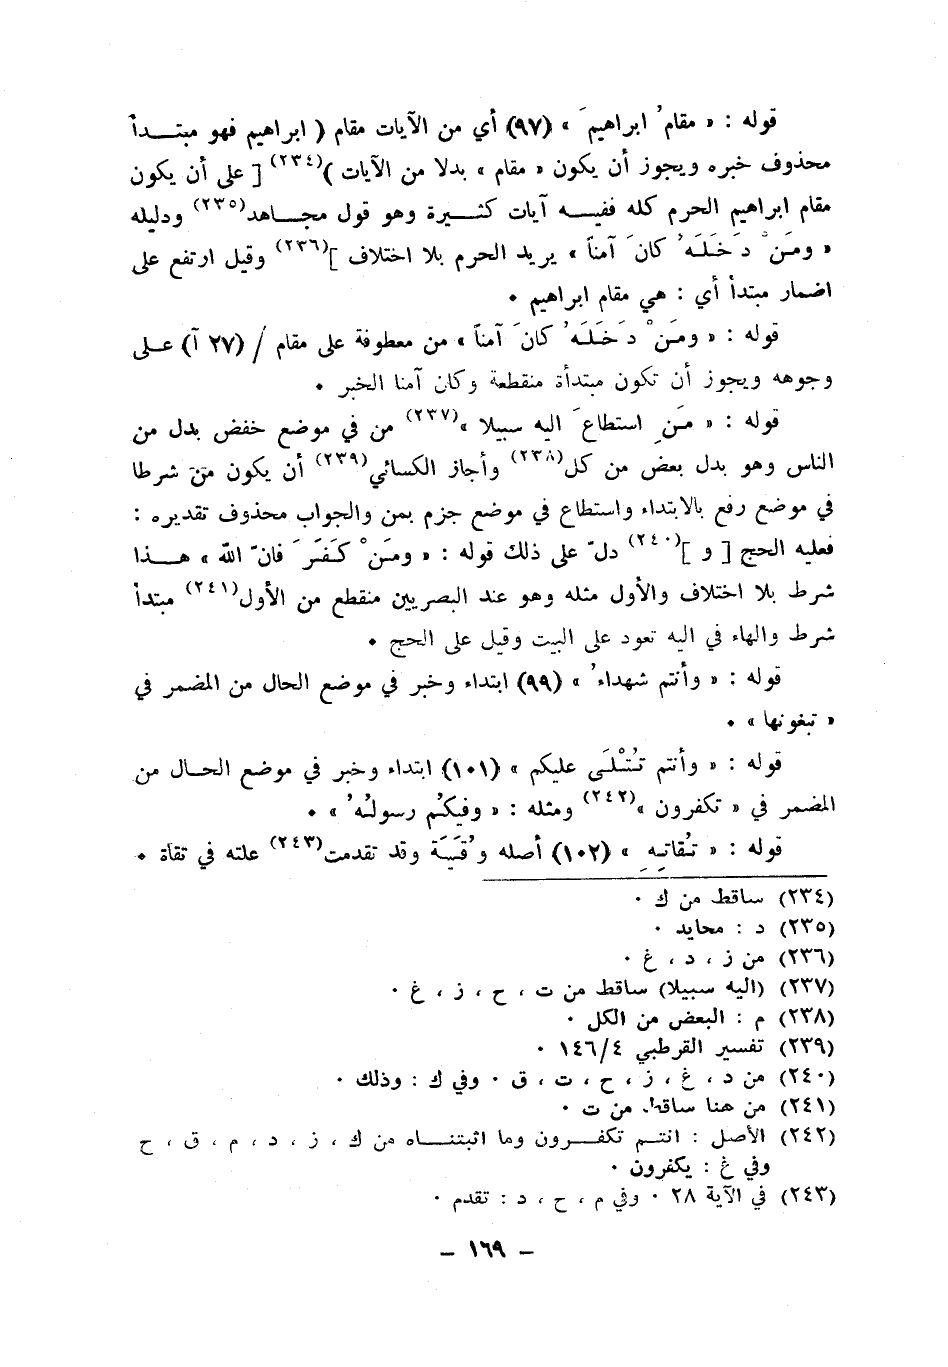 قوله : « مقامُ ابراهيمَ » (٩٧) أي من الآيات مقام ( ابراهيم فهو مبتـــدأ
محذوف خبره ويجوز أن يكون « مقام » بدلا من الآيات )(٢٣٤) [ على أن يكون
مقام ابراهيم الحرم كله ففيـــه آيات كثـــيرة وهو قول مجـــاهد(٢٣٥) ودليله
« ومَنْ دَخَلَهُ كانَ آمناً » يريد الحرم بلا اختلاف ](٢٣٦) وقيل ارتفع على
اضمار مبتدأ أي : هي مقام ابراهيم ٠
قوله : « ومَنْ دَخَلَهُ كانَ آمناً » من معطوفة على مقام / (٢٧ آ) عـــلى
وجوهه ويجوز أن تكون مبتدأة منقطعة وكان آمنا الخبر ٠
قوله : « مَنِ استطاعَ اليه سبيلا »(٢٣٧) من في موضع خفض بدل من
الناس وهو بدل بعض من كل(٢٣٨) وأجاز الكسائي(٢٣٩) أن يكون مَنْ شرطا
في موضع رفع بالابتداء واستطاع في موضع جزم بمن والجواب محذوف تقديره :
فعليه الحج [ و ](٢٤٠) دلّ على ذلك قوله : « ومَنْ كَفَرَ فانّ الله » هـــذا
شرط بلا اختلاف والأول مثله وهو عند البصريين منقطع من الأول(٢٤١) مبتدأ
شرط والهاء في اليه تعود على البيت وقيل على الحج ٠
قوله : « وأنتم شهداءُ » (٩٩) ابتداء وخبر في موضع الحال من المضمر في
« تبغونها » ٠
قوله : « وأنتم تُتْلَى عليكم » (١٠١) ابتداء وخبر في موضع الحـــال من
المضمر في « تكفرون »(٢٤٢) ومثله : « وفيكُم رسولُهُ » ٠
قوله : « تُقاتِهِ » (١٠٢) أصله وُقَيَة وقد تقدمت(٢٤٣) علته في تقاة ٠
(٢٣٤) ساقط من ك ٠
(٢٣٥) د : محايد ٠
(٢٣٦) من ز ، د ، غ ٠
(٢٣٧) (اليه سبيلا) ساقط من ت ، ح ، ز ، غ ٠
(٢٣٨) م : البعض من الكل ٠
(٢٣٩) تفسير القرطبي ١٤٦/٤ ٠
(٢٤٠) من د ، غ ، ز ، ح ، ت ، ق ٠ وفي ك : وذلك ٠
(٢٤١) من هنا ساقط من ت ٠
(٢٤٢) الأصل : انتـــم تكفـــرون وما اثبتنـــاه من ك ، ز ، د ، م ، ق ، ح
وفي غ : يكفرون ٠
(٢٤٣) في الآية ٢٨ ٠ وفي م ، ح ، د : تقدم ٠
– ١٦٩ –